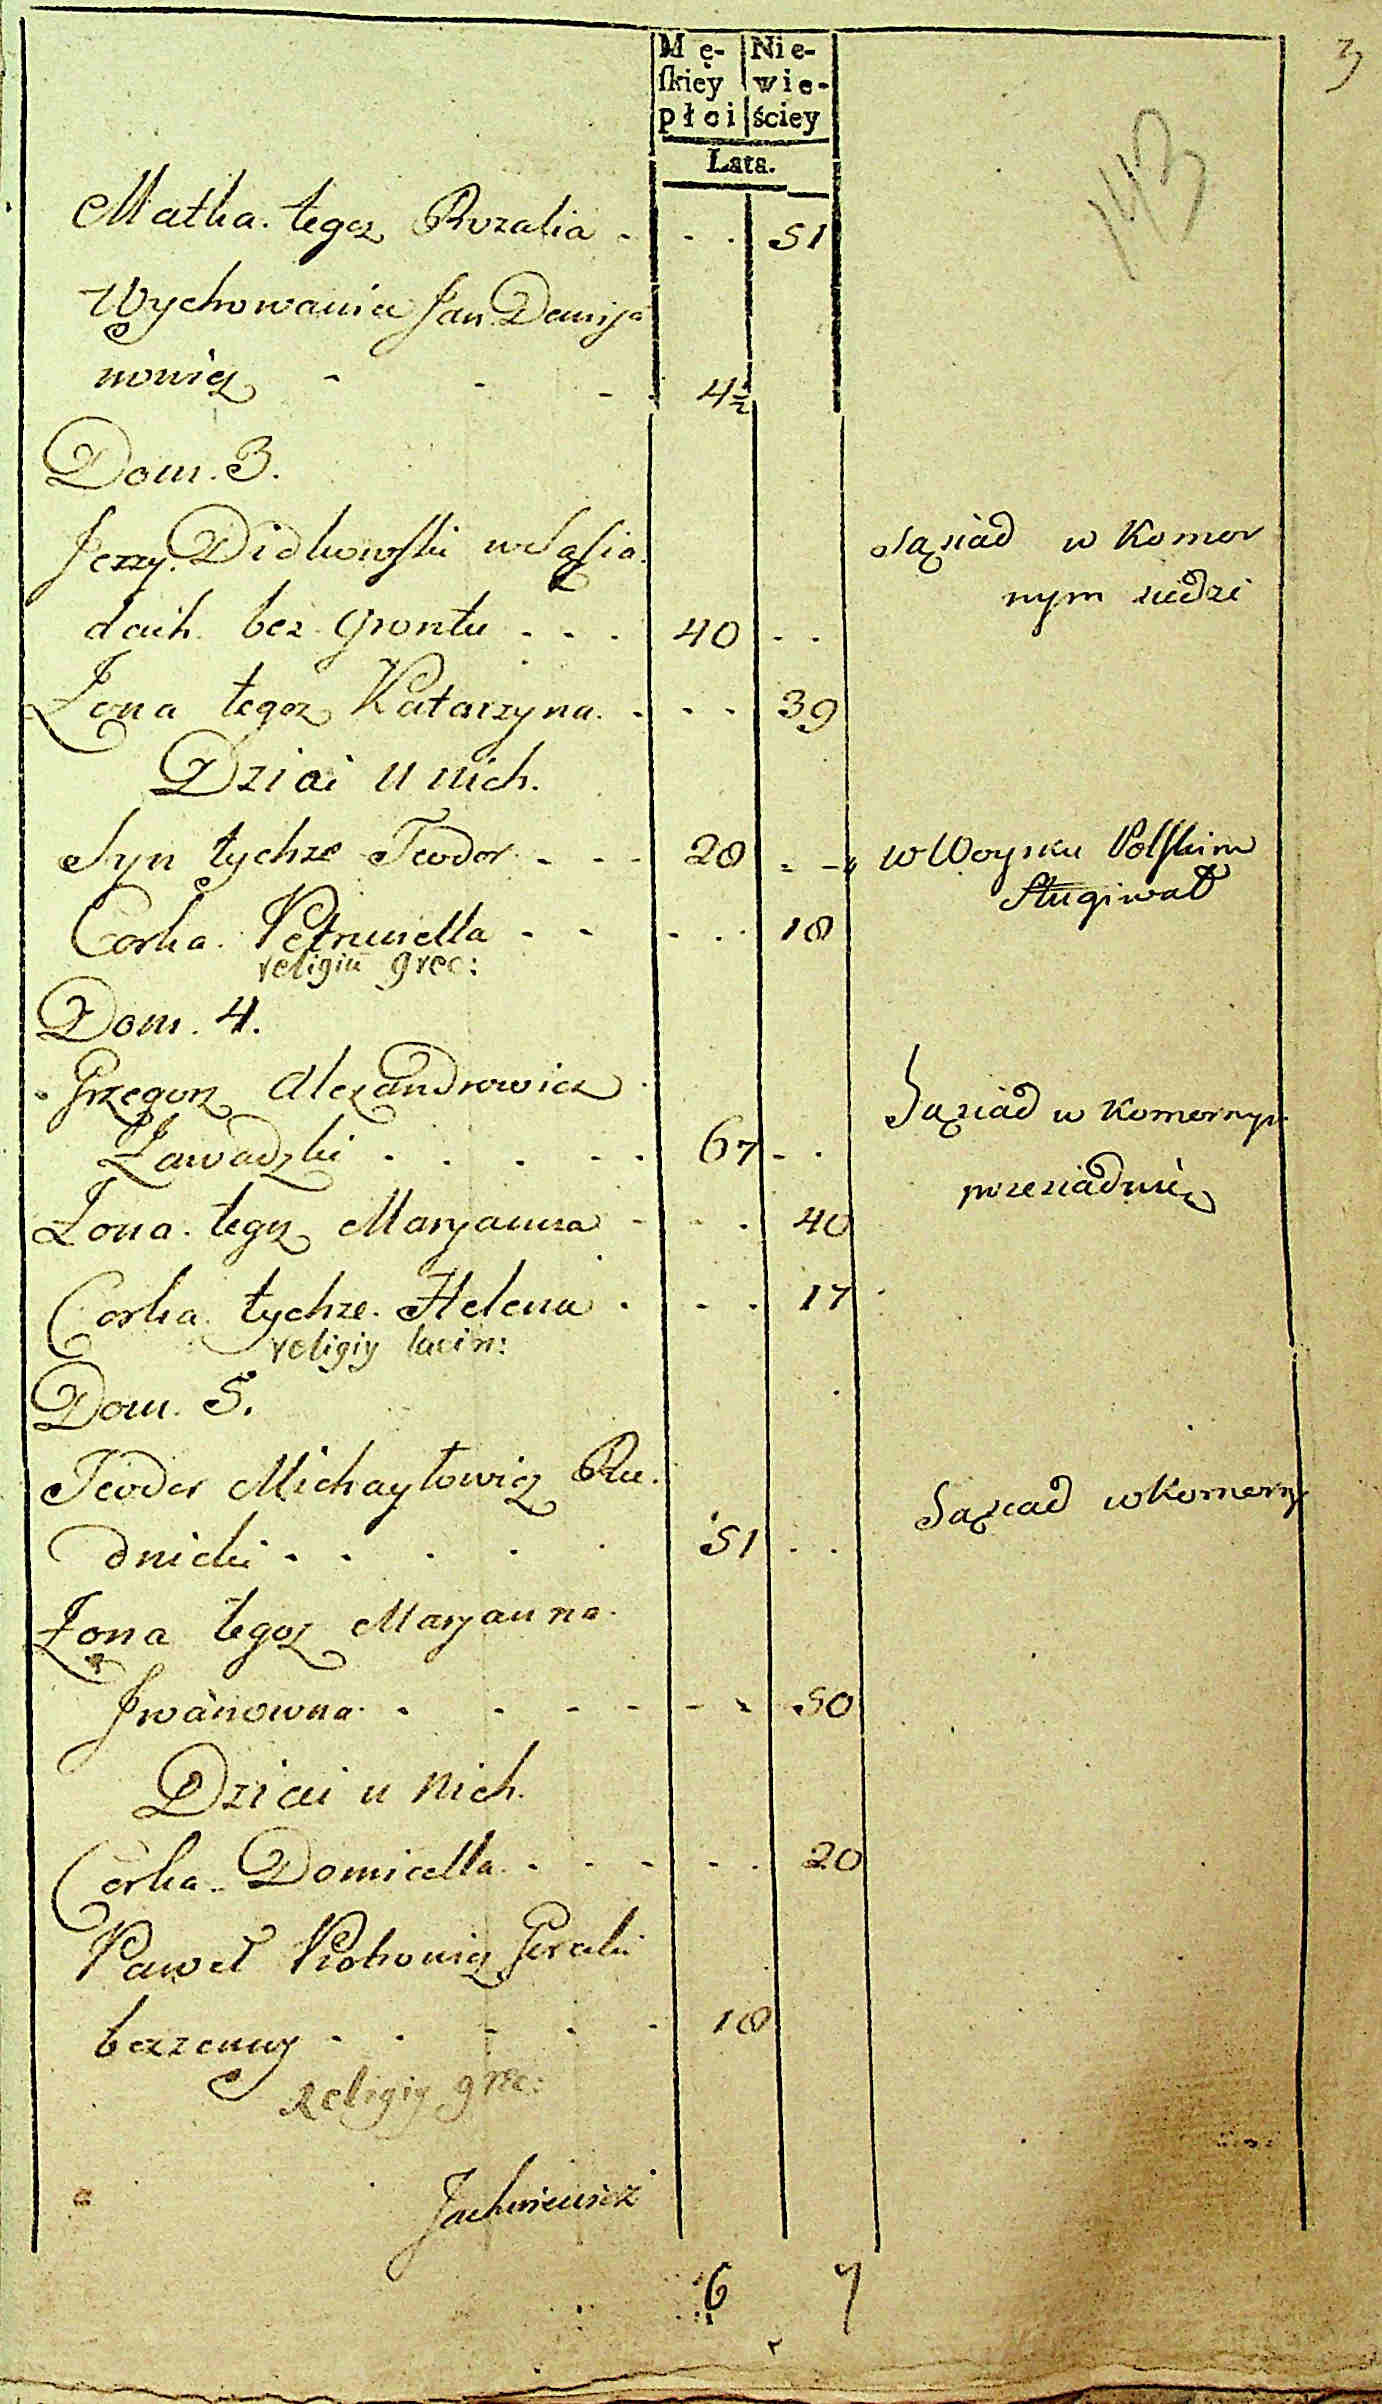 3
143
Mę- Nie-
skiey wie-
płci ściey
Lata.
Matka tegoż Rozalia - - - 51
Wychowaniec Jan Demija
nowicz - - - 4½
Dom. 3.
Jerzy Didkowski w Sąsia
dach bez gruntu - - - 40 - -
Sąsiad w Komor
nym siedzi
Żona tegoż Katarzyna - - - 39
Dzieci u nich.
Syn tychże Teodor - - - 20 - -
w Woysku Polskim
Sługiwał
Corka Petrunella - - - - 18
religii grec:
Dom. 4.
Grzegorz Alexandrowicz
Zawadzki - - - - - 67 - -
Sąsiad w Komornym
przesiaduie
Żona tegoż Maryanna - - - 40
Corka tychże Helena - - - 17
religiy łacin:
Dom. 5.
Teodor Michayłowicz Ru
dnicki - - - - - 51 - -
Sąsiad w Komorny
Żona tegoż Maryanna
Iwanowna - - - - - - 50
Dzieci u nich.
Corka Domicella - - - - - 20
Paweł
bezżenny - - - - - 18
Religiy grec:
6 7